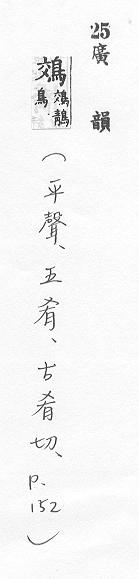 25廣韻
鵁 鵁鶄鳥
(平聲、五肴、古肴切、p.152)